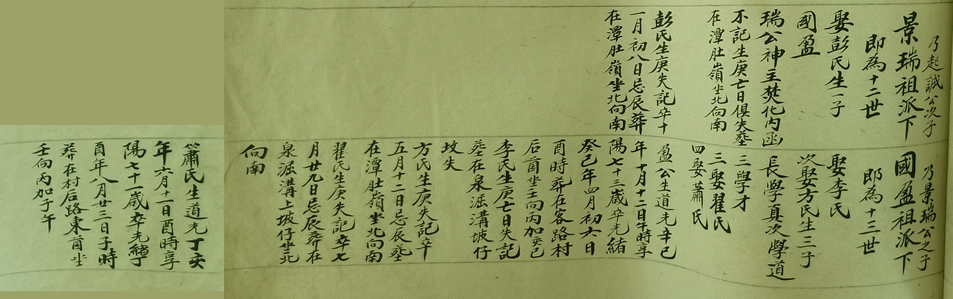 乃起誠公次子
景瑞祖派下
即為十二世
娶彭氏生一子
國盈
瑞公神主焚化內函
不記生庚亡日俱失葬
在潭肚嶺坐北向南
彭氏生庚失記卒十
一月初八日忌辰葬
在潭肚嶺坐北向南
乃景瑞公之子
國盈祖派下
即為十三世
娶李氏
次娶方氏生三子
長學真次學道
三學才
三娶翟氏
四娶蕭氏
盈公生道光辛巳
年十月十二日午時享
陽七十三歲卒光緒
癸巳年四月初六日
酉時葬在客路村
后酉坐壬向丙加癸巳
李氏生庚亡日失記
葬在泉淈溝坡仔
坟失
方氏生庚失記卒
五月十二日忌辰葬
在潭肚嶺坐北向南
翟氏生庚失記卒七
月廿九日忌辰葬在
泉淈溝上坡仔坐北
向南
蕭氏生道光丁亥
年六月十一日酉時享
陽七十一歲卒光緒丁
酉年八月廿三日子時
葬在村后路東酉坐
壬向丙加子午